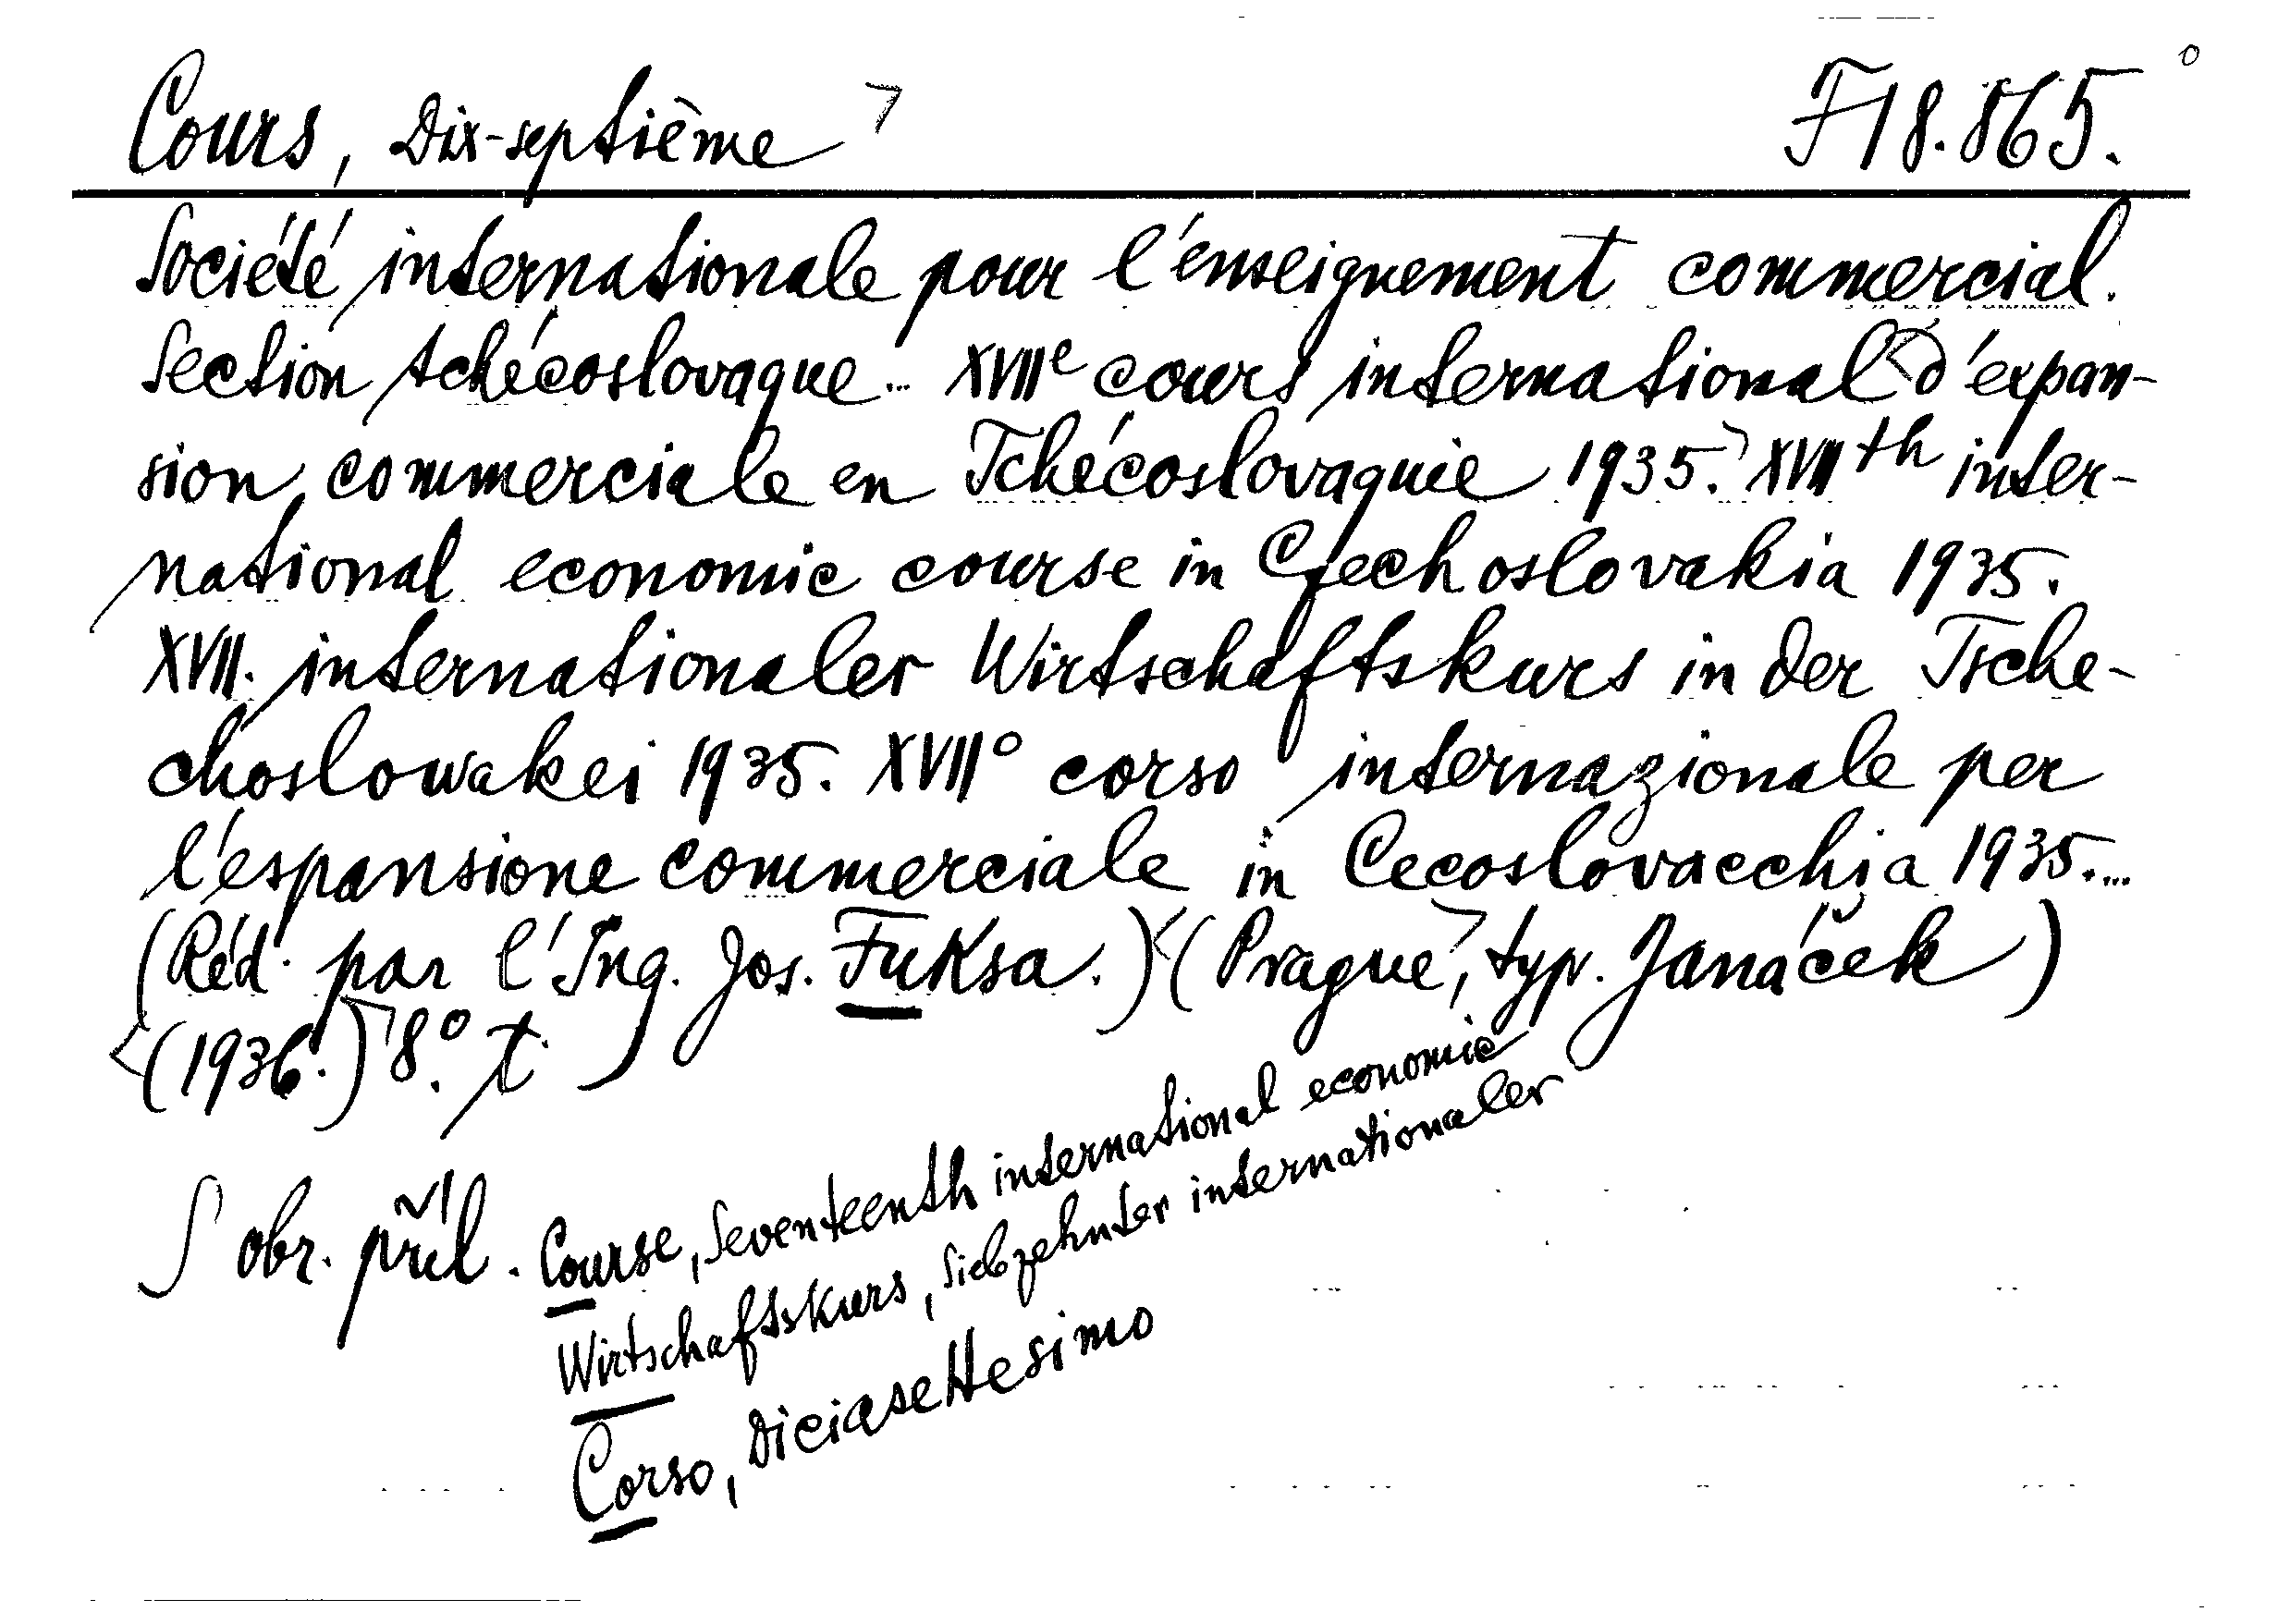 Cours, Dix-septième F 18.865.
Société internationale pour l'enseignement commercial.
Section tchécoslovaque... XVIIe cours international d'expan-
sion commerciale en Tchécoslovaquie 1935. XVIIth inter-
national economic course in Czechoslovakia 1935.
XVII. internationaler Wirtschaftskurs in der Tsche-
choslowakei 1935. XVII° corso internazionale per
l'espansione commerciale in Cecoslovacchia 1935....
(Réd. par l'Ing. Jos. Fuksa.) (Prague, typ. Janáček)
(1936.) 8°.
S obr. příl.
Course, Seventeenth international economic
Wirtschaftskurs, Siebzehnter internationaler
Corso, Diciasettesimo